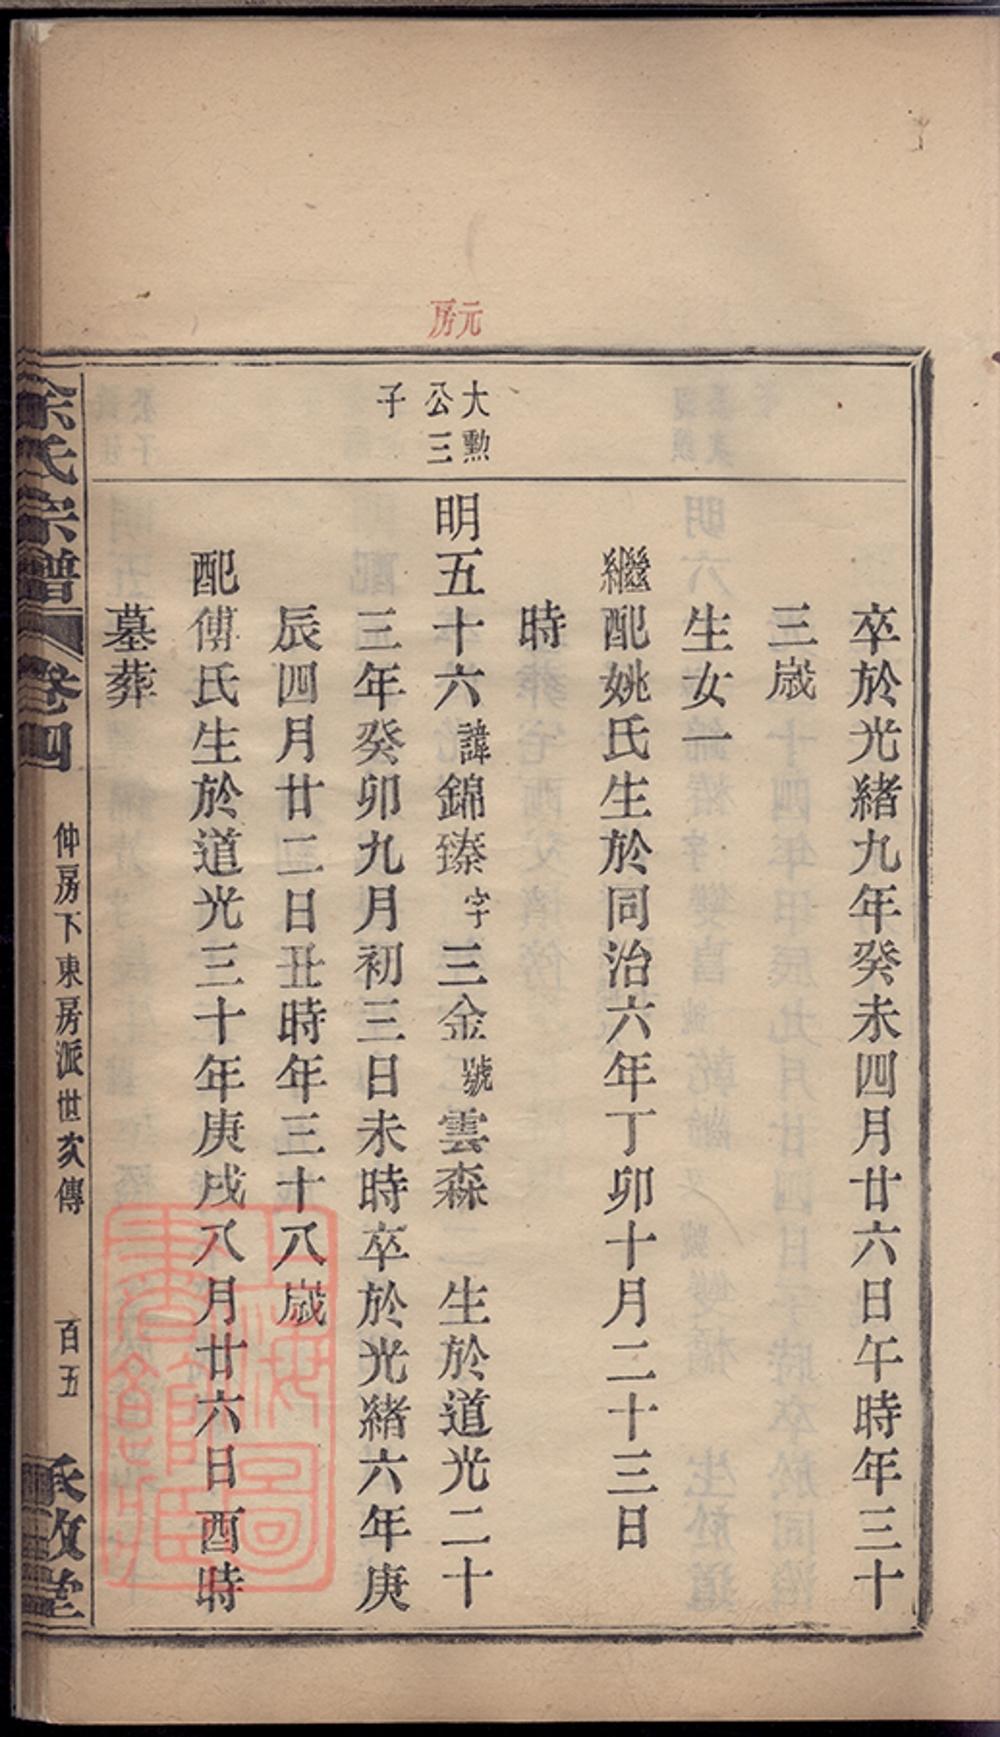 元房
卒於光緒九年癸未四月廿六日午時年三十
三歲
生女一
繼配姚氏生於同治六年丁卯十月二十三日
時
大勲公三子
明五十六諱錦臻字三金號雲森 生於道光二十
三年癸卯九月初三日未時卒於光緒六年庚
辰四月廿二日丑時年三十八歲
配傅氏生於道光三十年庚戌八月廿六日酉時
墓葬
氏宗譜 卷四 仲房下東房派世次傳 百五 承啟堂